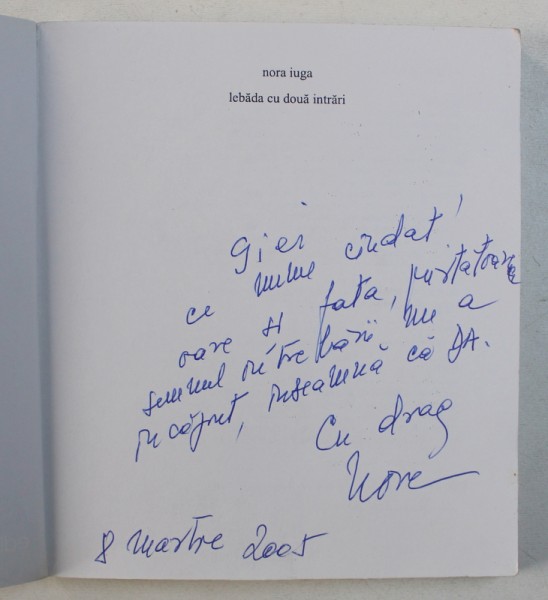 nora iuga
lebăda cu două intrări
Giei
ce nume ciudat!
oare și fata, purtătoarea
semnul întrebării, nu a
încăput, înseamnă că DA.
Cu drag
Nora
8 martie 2005